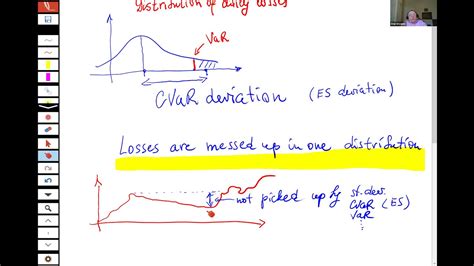 Distribution of daily losses
VaR
CVaR deviation (ES deviation)
Losses are messed up in one distribution
not picked up by st. dev.
CVaR (ES)
VaR